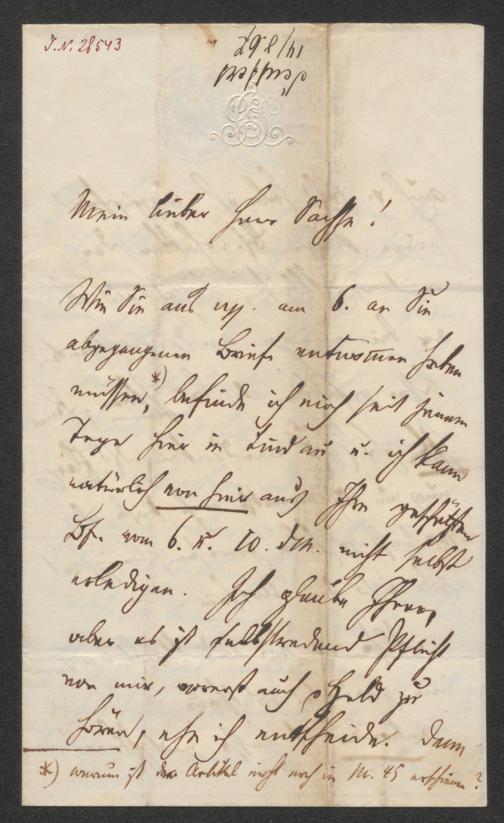 I.N. 28543
14/8 67.
Mein lieber Herr Sachse!
Wie Sie aus m. am 6. an Sie
abgegangenen Briefe entnommen haben
müssen,*) befinde ich mich seit jenem
Tage hier in Lindau u. ich kann
natürlich von hier aus Ihre geschätzten
Bf. vom 6. u. 10. dM. nicht selbst
erledigen. Ich glaube Ihnen,
aber es ist selbstredend Pflicht
von mir, vorerst auch Held zu
hören, ehe ich entscheide. Denn
*) warum ist der Artikel nicht noch in Nr. 45 erschienen?